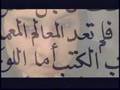 فلم تعد المعالم المعم
ب الكتب أما اللو